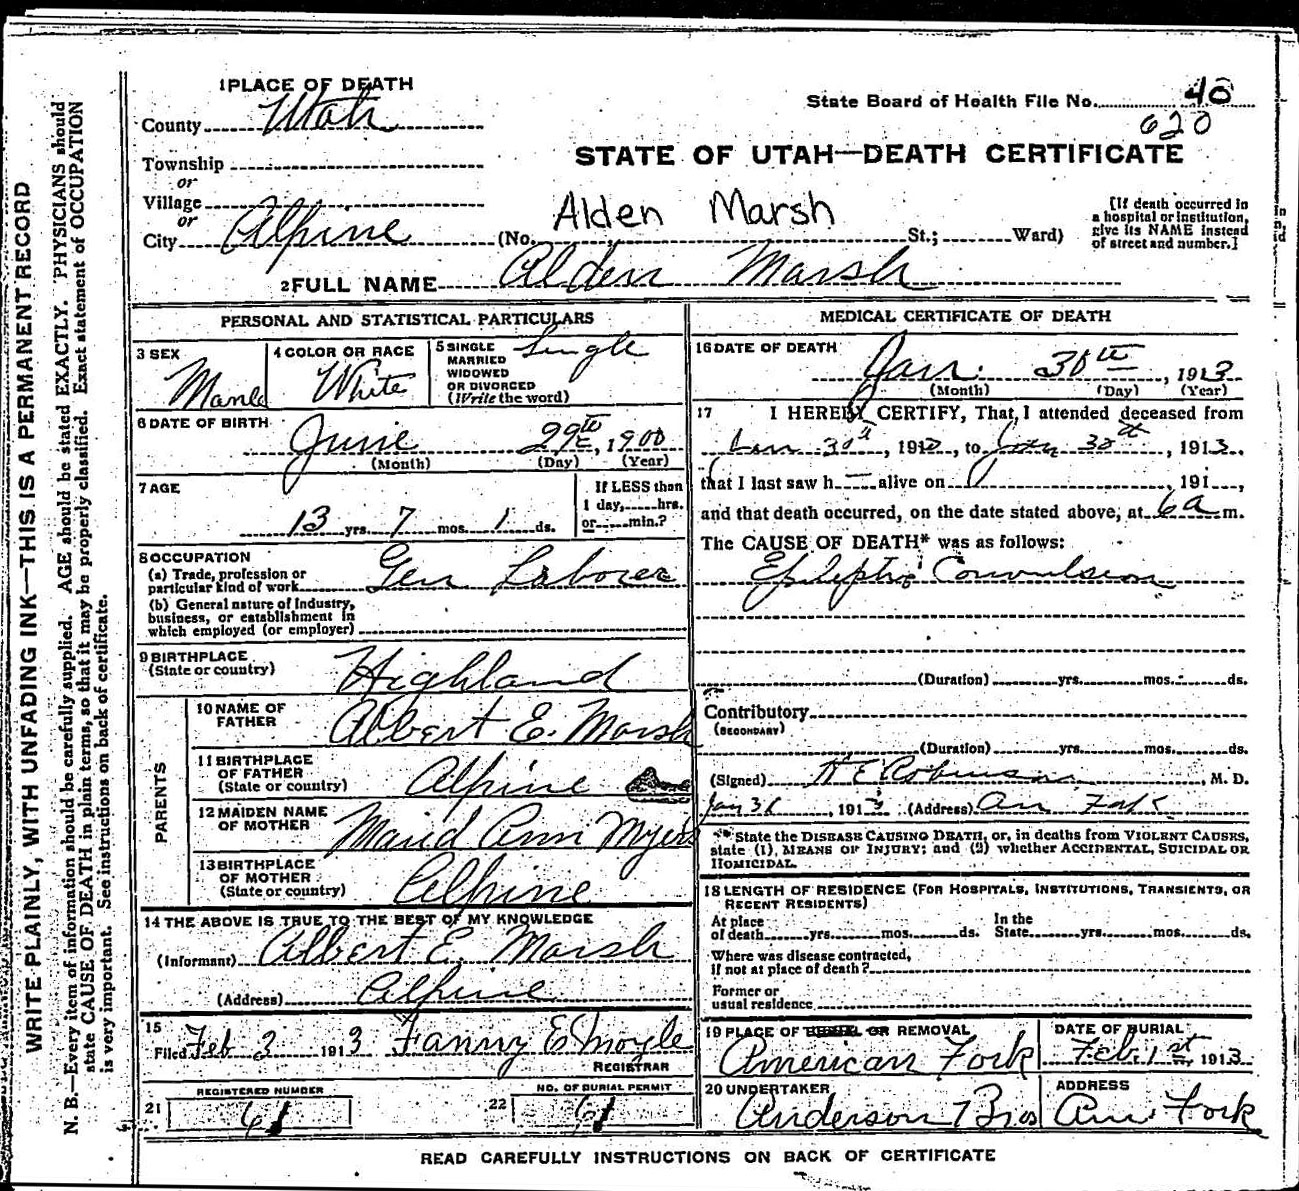 1 PLACE OF DEATH
County Utah
Township
or
Village
or
City Alpine
State Board of Health File No. 40
620
STATE OF UTAH—DEATH CERTIFICATE
Alden Marsh
(No. St.; Ward)
[If death occurred in
a hospital or institution,
give its NAME instead
of street and number.]
2 FULL NAME Alden Marsh
PERSONAL AND STATISTICAL PARTICULARS
3 SEX
4 COLOR OR RACE White
5 SINGLE
MARRIED
WIDOWED
OR DIVORCED
(Write the word)
Single
6 DATE OF BIRTH
June 29th, 1900
(Month) (Day) (Year)
7 AGE
13 yrs. 7 mos. 1 ds.
If LESS than
1 day, hrs.
or min.?
8 OCCUPATION
(a) Trade, profession or
particular kind of work Gen Laborer
(b) General nature of industry,
business, or establishment in
which employed (or employer)
9 BIRTHPLACE
(State or country) Highland
PARENTS
10 NAME OF
FATHER Albert E. Marsh
11 BIRTHPLACE
OF FATHER
(State or country) Alpine
12 MAIDEN NAME
OF MOTHER Maud Ann Myers
13 BIRTHPLACE
OF MOTHER
(State or country) Alpine
14 THE ABOVE IS TRUE TO THE BEST OF MY KNOWLEDGE
(Informant) Albert E. Marsh
(Address) Alpine
15
Filed Feb 3 1913 Fanny E Moyle
REGISTRAR
REGISTERED NUMBER
21 61
NO. OF BURIAL PERMIT
22 61
MEDICAL CERTIFICATE OF DEATH
16 DATE OF DEATH
Jan. 30th, 1913
(Month) (Day) (Year)
17 I HEREBY CERTIFY, That I attended deceased from
Jan 30th, 1913, to Jan 30th, 1913,
that I last saw h alive on , 191 ,
and that death occurred, on the date stated above, at 6 a m.
The CAUSE OF DEATH* was as follows:
Epileptic Convulsion
(Duration) yrs. mos. ds.
Contributory
(SECONDARY)
(Duration) yrs. mos. ds.
(Signed) Robinson, M. D.
Jan 31, 1913 (Address) Am Fork
* State the DISEASE CAUSING DEATH, or, in deaths from VIOLENT CAUSES,
state (1), MEANS OF INJURY; and (2) whether ACCIDENTAL, SUICIDAL OR
HOMICIDAL.
18 LENGTH OF RESIDENCE (FOR HOSPITALS, INSTITUTIONS, TRANSIENTS, OR
RECENT RESIDENTS)
At place
of death yrs. mos. ds.
In the
State yrs. mos. ds.
Where was disease contracted,
if not at place of death?
Former or
usual residence
19 PLACE OF BURIAL OR REMOVAL
American Fork
DATE OF BURIAL
Feb. 1st 1913
20 UNDERTAKER
Anderson Bros
ADDRESS
Am. Fork
READ CAREFULLY INSTRUCTIONS ON BACK OF CERTIFICATE
WRITE PLAINLY, WITH UNFADING INK—THIS IS A PERMANENT RECORD
N. B.—Every item of information should be carefully supplied. AGE should be stated EXACTLY. PHYSICIANS should
state CAUSE OF DEATH in plain terms, so that it may be properly classified. Exact statement of OCCUPATION
is very important. See instructions on back of certificate.